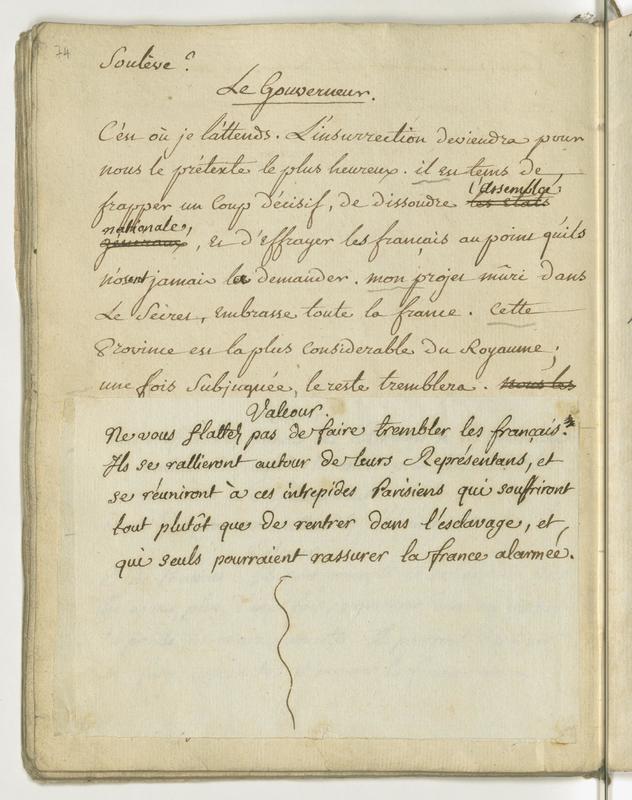 74
Soulève?
Le Gouverneur.
C'est où je l'attends. L'insurrection deviendra pour
nous le prétexte le plus heureux. il est tems de
frapper un Coup décisif, de dissoudre les Etats l'Assemblée
généraux nationale, et d'effrayer les français au point qu'ils
n'osent jamais la demander. mon projet mûri dans
Le Secret, Embrasse toute la france. Cette
Province est la plus Considerable du Royaume;
une fois Subjuguée, le reste tremblera. nous les
Valcour.
Ne vous flattez pas de faire trembler les français.
Ils se rallieront autour de leurs Représentans, et
se réuniront à ces intrepides Parisiens qui souffriront
tout plutôt que de rentrer dans l'esclavage, et
qui seuls pourraient rassurer la france alarmée.